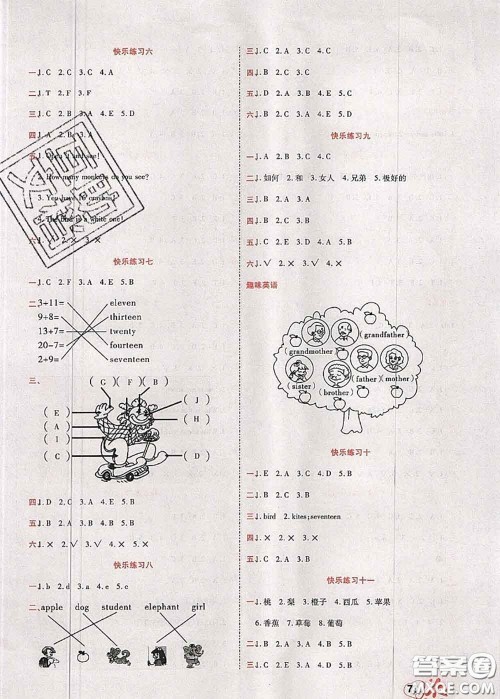 快乐练习六
一、1. C 2. C 3. C 4. A
二、1. T 2. F 3. F
三、1. C 2. B 3. A 4. E 5. D
四、1. A
3. You have 16 crayons!
快乐练习七
一、1. C 2. F
二、3+11= eleven
9+8= thirteen
13+7= twenty
20 fourteen
2+9= seventeen
三、
( G ) ( F ) ( B )
( E ) ( J )
( A )
( C ) ( H )
( I ) ( D )
四、1. D 2. C 3. A 4. E 5. B
五、1. A 2. B 3. A 4. B 5. B
六、1. × 2. √ 3. × 4. √ 5. √
快乐练习八
一、1. a 2. b 3. b 4. a 5. b
二、apple dog student elephant girl
三、1. C 2. A 3. C 4. C
四、1. B 2. A 3. B 4. C 5. B
五、1. D 2. C 3. A 4. E 5. B
快乐练习九
二、1. 如何 2. 和 3. 女人 4. 兄弟 5. 极好的
五、1. D 2. A 3. B
六、1. √ 2. × 3. × 4. √ 5. ×
趣味英语
( grandfather )
( grandmother )
( father ) ( mother )
( sister )
( brother )
快乐练习十
一、1. E 2. C 3. A 4. D 5. B
二、1. B 2. C 3. A 4. A 5. B
三、1. bird 2. kites; seventeen
四、1. A 2. C 3. B
快乐练习十一
一、1. 桃 2. 梨 3. 橙子 4. 西瓜 5. 苹果
6. 香蕉 7. 草莓 8. 葡萄
二、1. B 2. A 3. A 4. B 5. B
答案圈
MXQE.COM